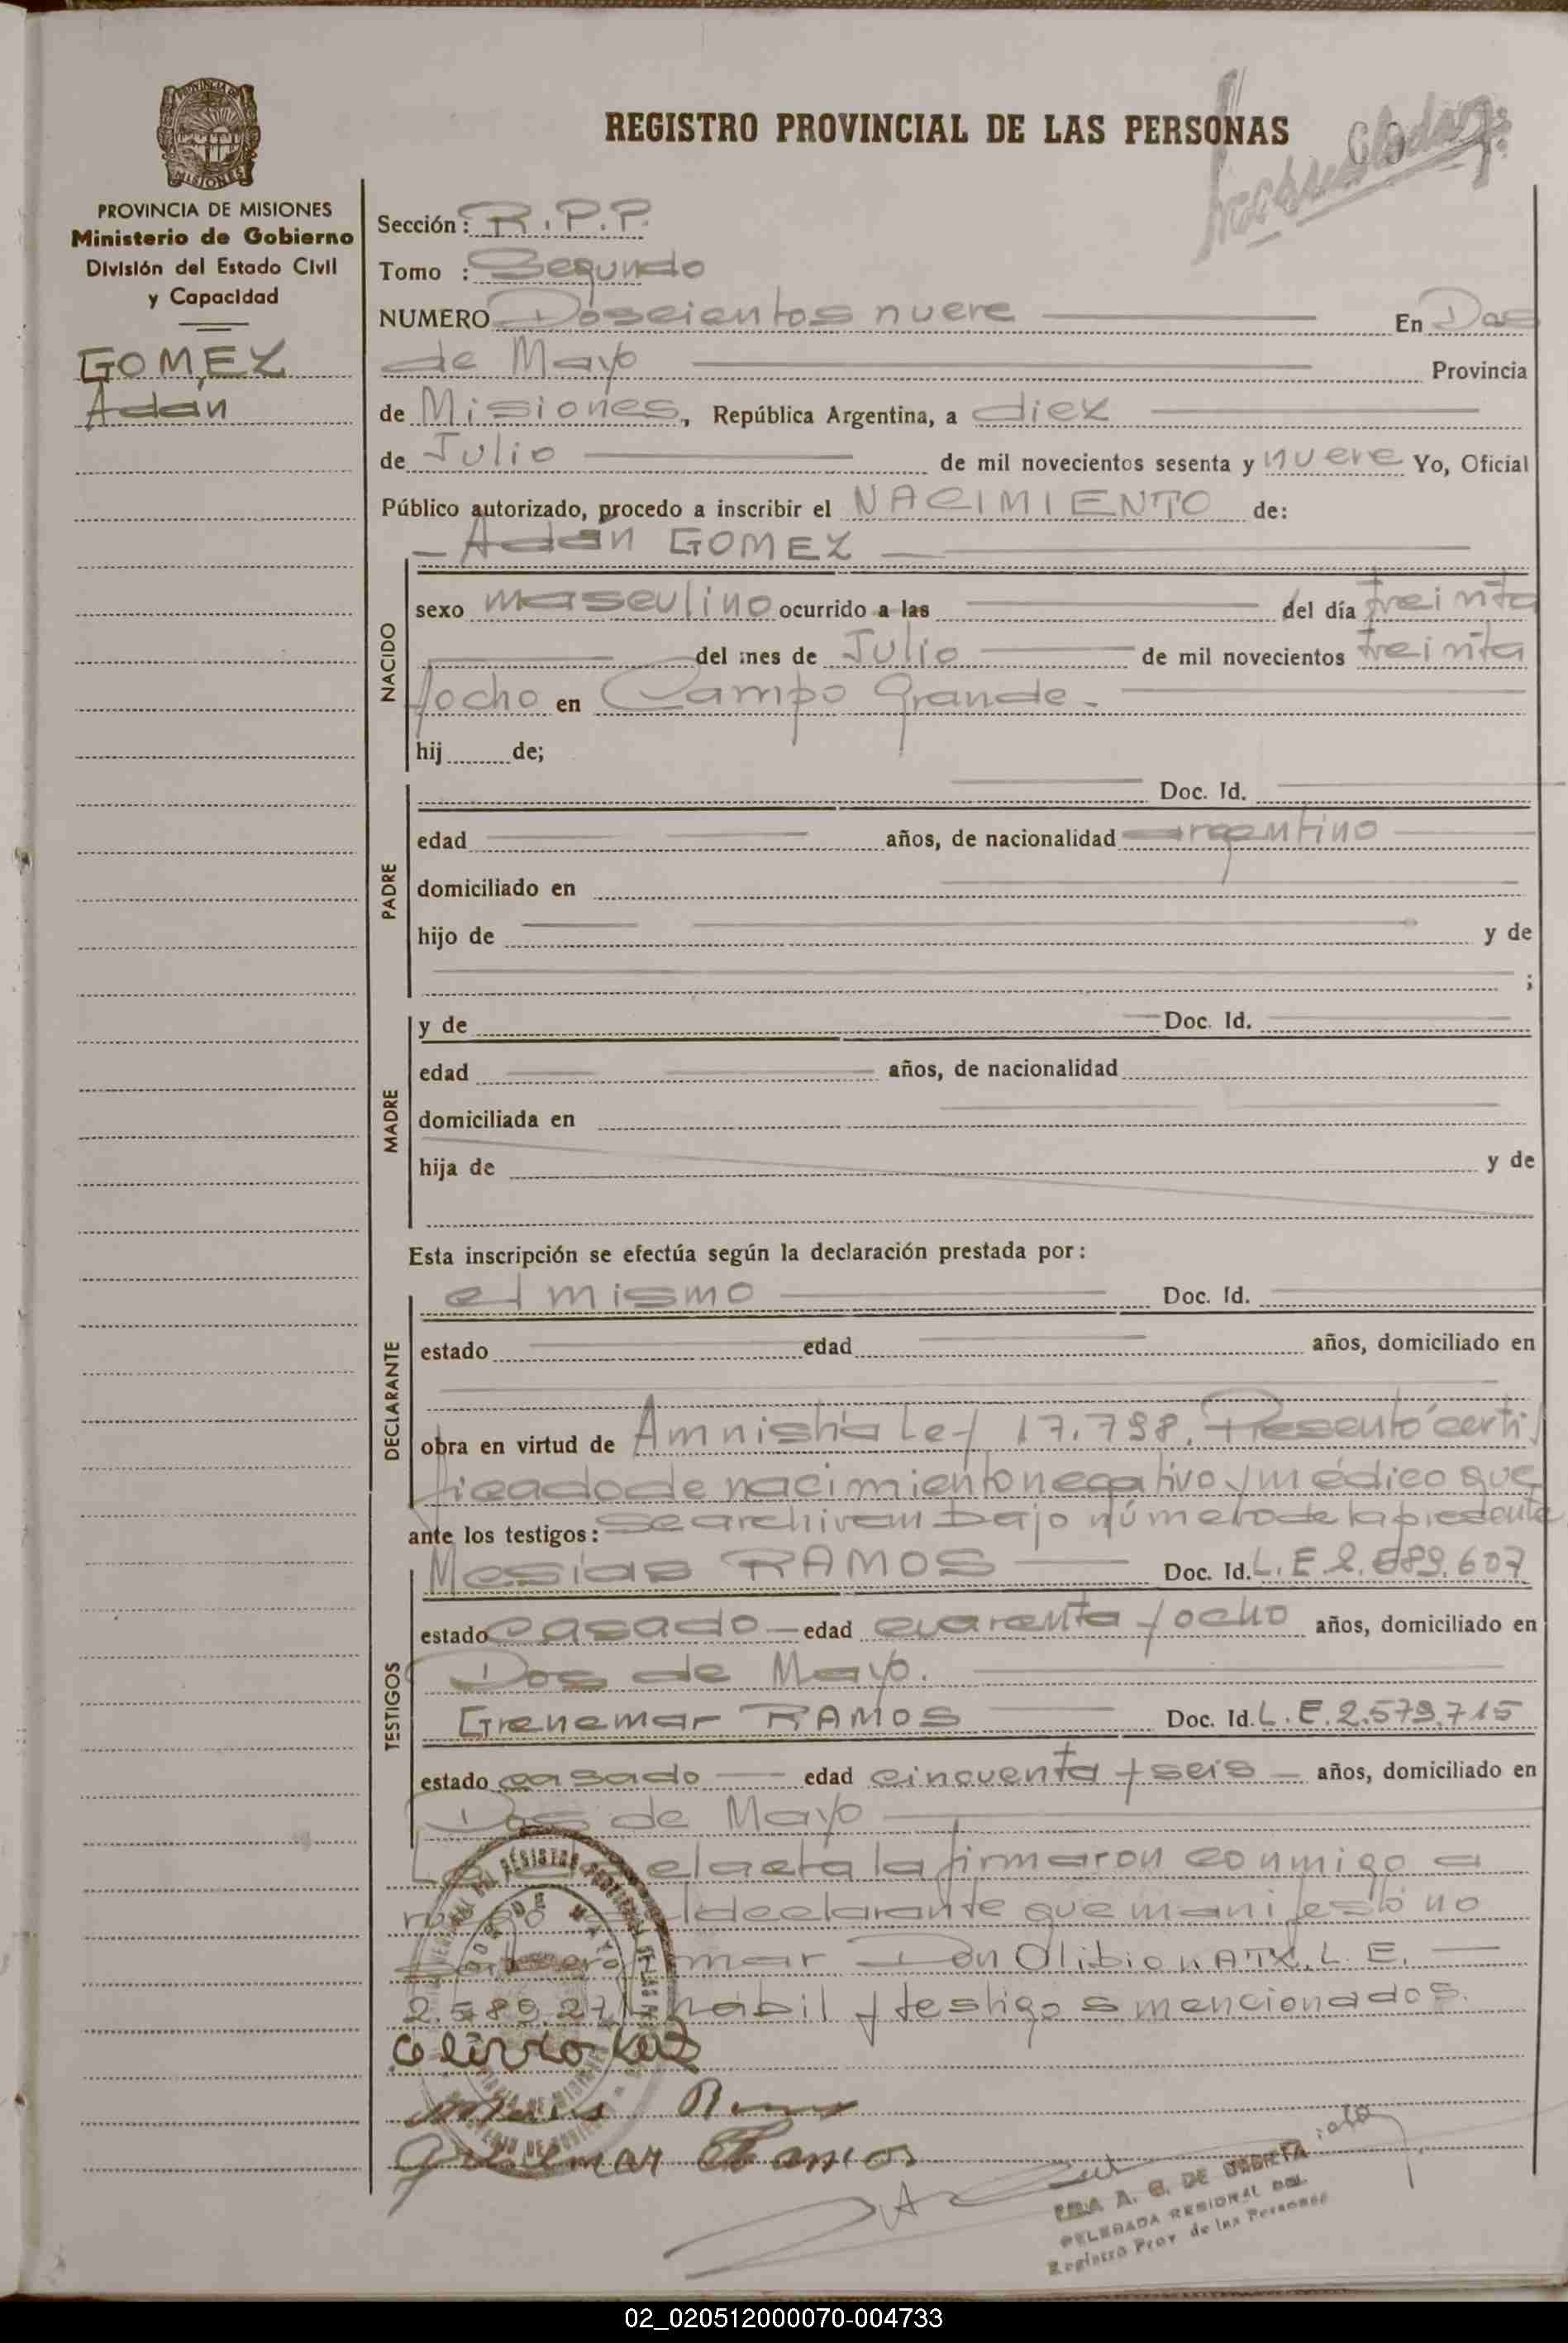 REGISTRO PROVINCIAL DE LAS PERSONAS
PROVINCIA DE MISIONES
Ministerio de Gobierno
División del Estado Civil
y Capacidad
GOMEZ
Adán
Sección: R.P.P.
Tomo : Segundo
NUMERO Doscientos nueve En Dos
de Mayo Provincia
de Misiones, República Argentina, a diez
de Julio de mil novecientos sesenta y nueve Yo, Oficial
Público autorizado, procedo a inscribir el NACIMIENTO de:
Adán GOMEZ
NACIDO
sexo masculino ocurrido a las del día treinta
del mes de Julio de mil novecientos treinta
y ocho en Campo Grande.
hij de;
PADRE
Doc. Id.
edad años, de nacionalidad argentino
domiciliado en
hijo de y de
;
MADRE
y de Doc. Id.
edad años, de nacionalidad
domiciliada en
hija de y de
Esta inscripción se efectúa según la declaración prestada por:
DECLARANTE
el mismo Doc. Id.
estado edad años, domiciliado en
obra en virtud de Amnistía Ley 17.798. Presentó certi
ficado de nacimiento negativo y médico que
ante los testigos: se archivan bajo número de la presente
TESTIGOS
Mesías RAMOS Doc. Id. L.E 2.589.607
estado casado edad cuarenta y ocho años, domiciliado en
Dos de Mayo.
Grenemar RAMOS Doc. Id. L.E. 2.579.715
estado casado edad cincuenta y seis años, domiciliado en
Dos de Mayo
el acta la firmaron conmigo a
ruego declarante que manifestó no
firmar Don Olibio L.E.
2.589.27 hábil y testigos mencionados.
Ramos
A. G. DE
DELEGADA REGIONAL DEL
Registro Prov. de las Personas
02_020512000070-004733